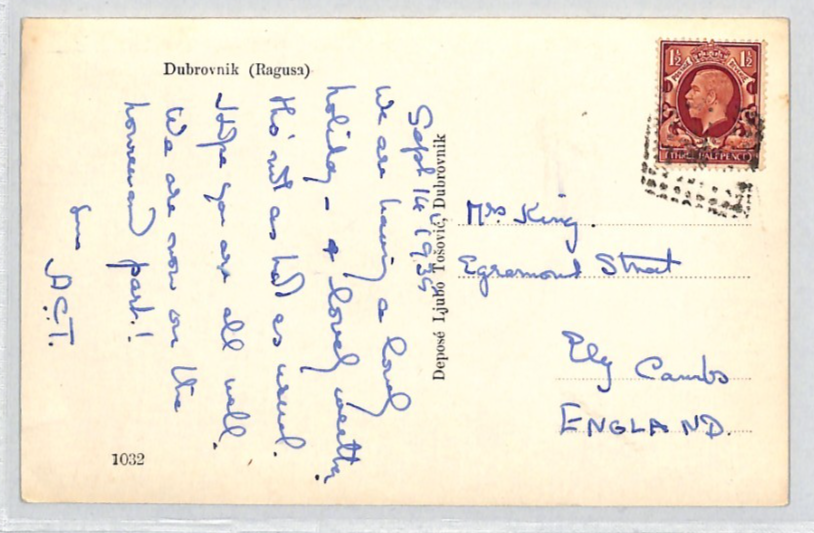 Dubrovnik (Ragusa)
Sept 14 1935
We are having a lovely
holiday - & lovely weather
tho' not as hot as usual.
Hope you are all well.
We are now on the
homeward part!
A.C.T.
1032
Deposé Ljubo Tošović, Dubrovnik
1½ 1½
POSTAGE REVENUE
THREE HALFPENCE
Mrs King.
Egremont Street
Ely Cambs
ENGLAND.